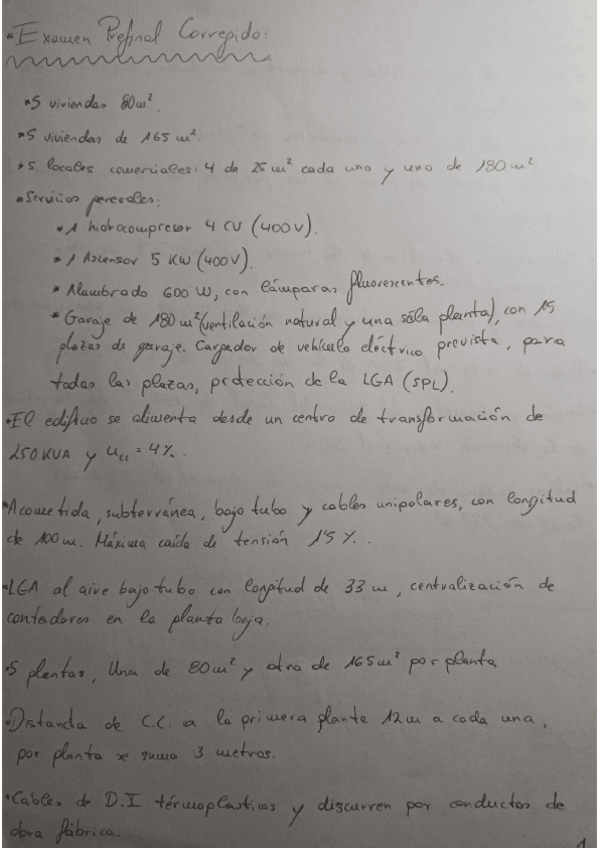 • Examen Prefinal Corregido:
• 5 viviendas 80 m².
• 5 viviendas de 165 m².
• 5 locales comerciales: 4 de 25 m² cada uno y uno de 180 m².
• Servicios generales:
• 1 hidrocompresor 4 CV (400V).
• 1 Ascensor 5 KW (400V).
• Alumbrado 600 W, con lámparas fluorescentes.
• Garaje de 180 m² (ventilación natural y una sóla planta), con 15
plazas de garaje. Cargador de vehículo eléctrico prevista, para
todas las plazas, protección de la LGA (SPL).
• El edificio se alimenta desde un centro de transformación de
250 KVA y Ucc = 4%.
• Acometida, subterránea, bajo tubo y cables unipolares, con longitud
de 100 m. Máxima caída de tensión 1'5 %.
• LGA al aire bajo tubo con longitud de 33 m, centralización de
contadores en la planta baja.
• 5 plantas, Una de 80 m² y otra de 165 m² por planta
• Distancia de C.C. a la primera planta 12 m a cada una,
por planta se suma 3 metros.
• Cables de D.I térmoplasticos y discurren por conductos de
obra fábrica.
1